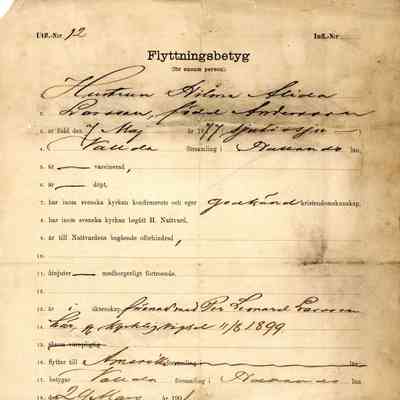 Utfl.-N:r 12 Infl.-N:r
Flyttningsbetyg
(för ensam person).
Hustrun Hilma Alida
2. Larsson, född Andersson
3. är född den 7 Maj år 1877 (sjuttiosju)
4. Vallda församling i Hallands län,
5. är — vaccinerad,
6. är — döpt,
7. har inom svenska kyrkan konfirmerats och eger godkänd kristendomskunskap,
8. har inom svenska kyrkan begått H. Nattvard,
9. är till Nattvardens begående oförhindrad,
10.
11. åtnjuter — medborgerligt förtroende.
12. är i äktenskap förenad med Per Leonard Larsson
kyrkligt vigsel 11/8 1899
15. (straxt varspligtig)
16. flyttar till Amerik församling län
17. betygar Vallda församling i Hallands län
18. den 29 Mars år 1901